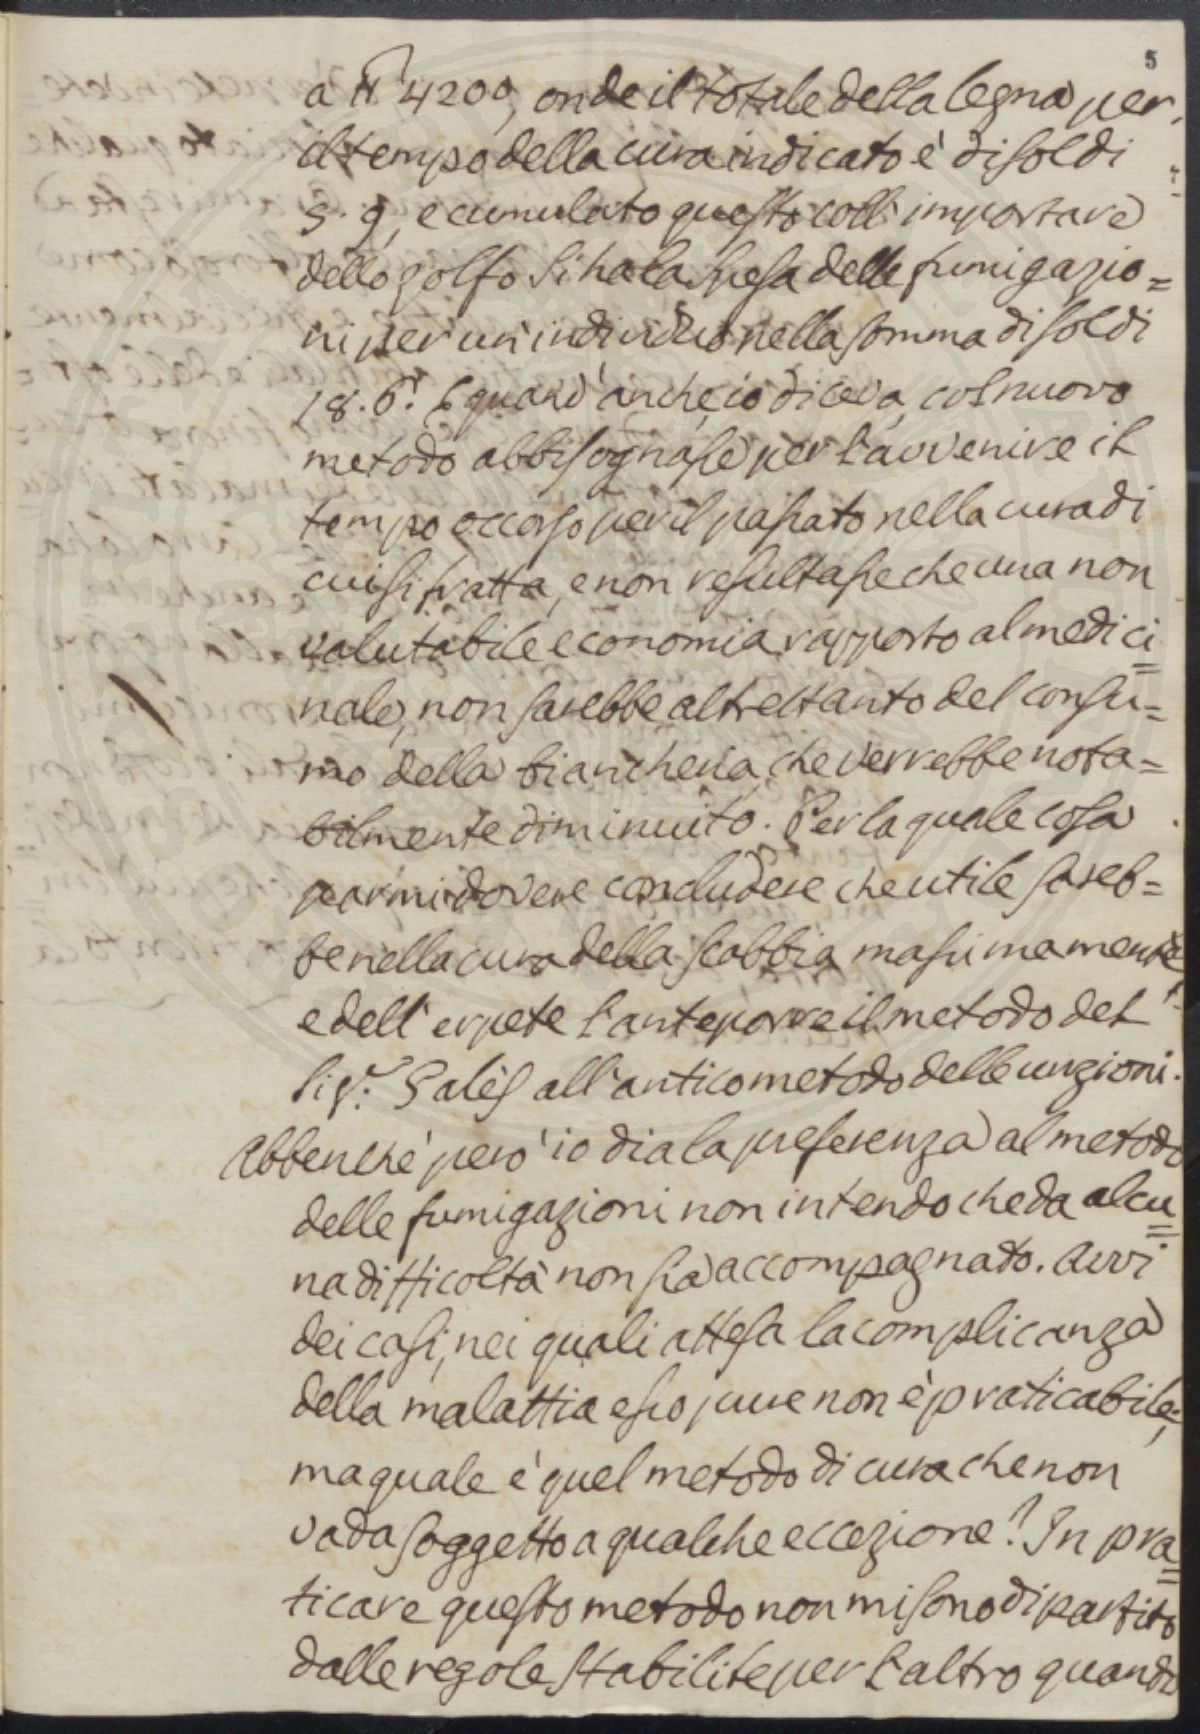 5
a 4200, onde il totale della legna per
il tempo della cura indicato è di soldi
5. 9, e cumulato questo coll' importare
dello zolfo si ha la spesa delle fumigazio=
ni per un individuo nella somma di soldi
18. 6. E quand' anche, io diceva, col nuovo
metodo abbisognasse per l'avvenire il
tempo occorso per il passato nella cura di
cui si tratta, e non resultasse che una non
valutabile economia rapporto al medici=
nale, non sarebbe altrettanto del consu=
mo della biancheria, che verrebbe nota=
bilmente diminuito. Per la quale cosa
parmi dovere concludere che utile sareb=
be nella cura della scabbia massimamente
e dell' erpete l'anteporre il metodo del
Sig.r Galès all' antico metodo delle unzioni.
Abbenchè però io dia la preferenza al metodo
delle fumigazioni non intendo che da alcu=
na difficoltà non sia accompagnato. Avvi
dei casi, nei quali attesa la complicanza
della malattia esso pure non è praticabile;
ma quale è quel metodo di cura che non
vada soggetto a qualche eccezione? In pra=
ticare questo metodo non mi sono dipartito
dalle regole stabilite per l'altro quando